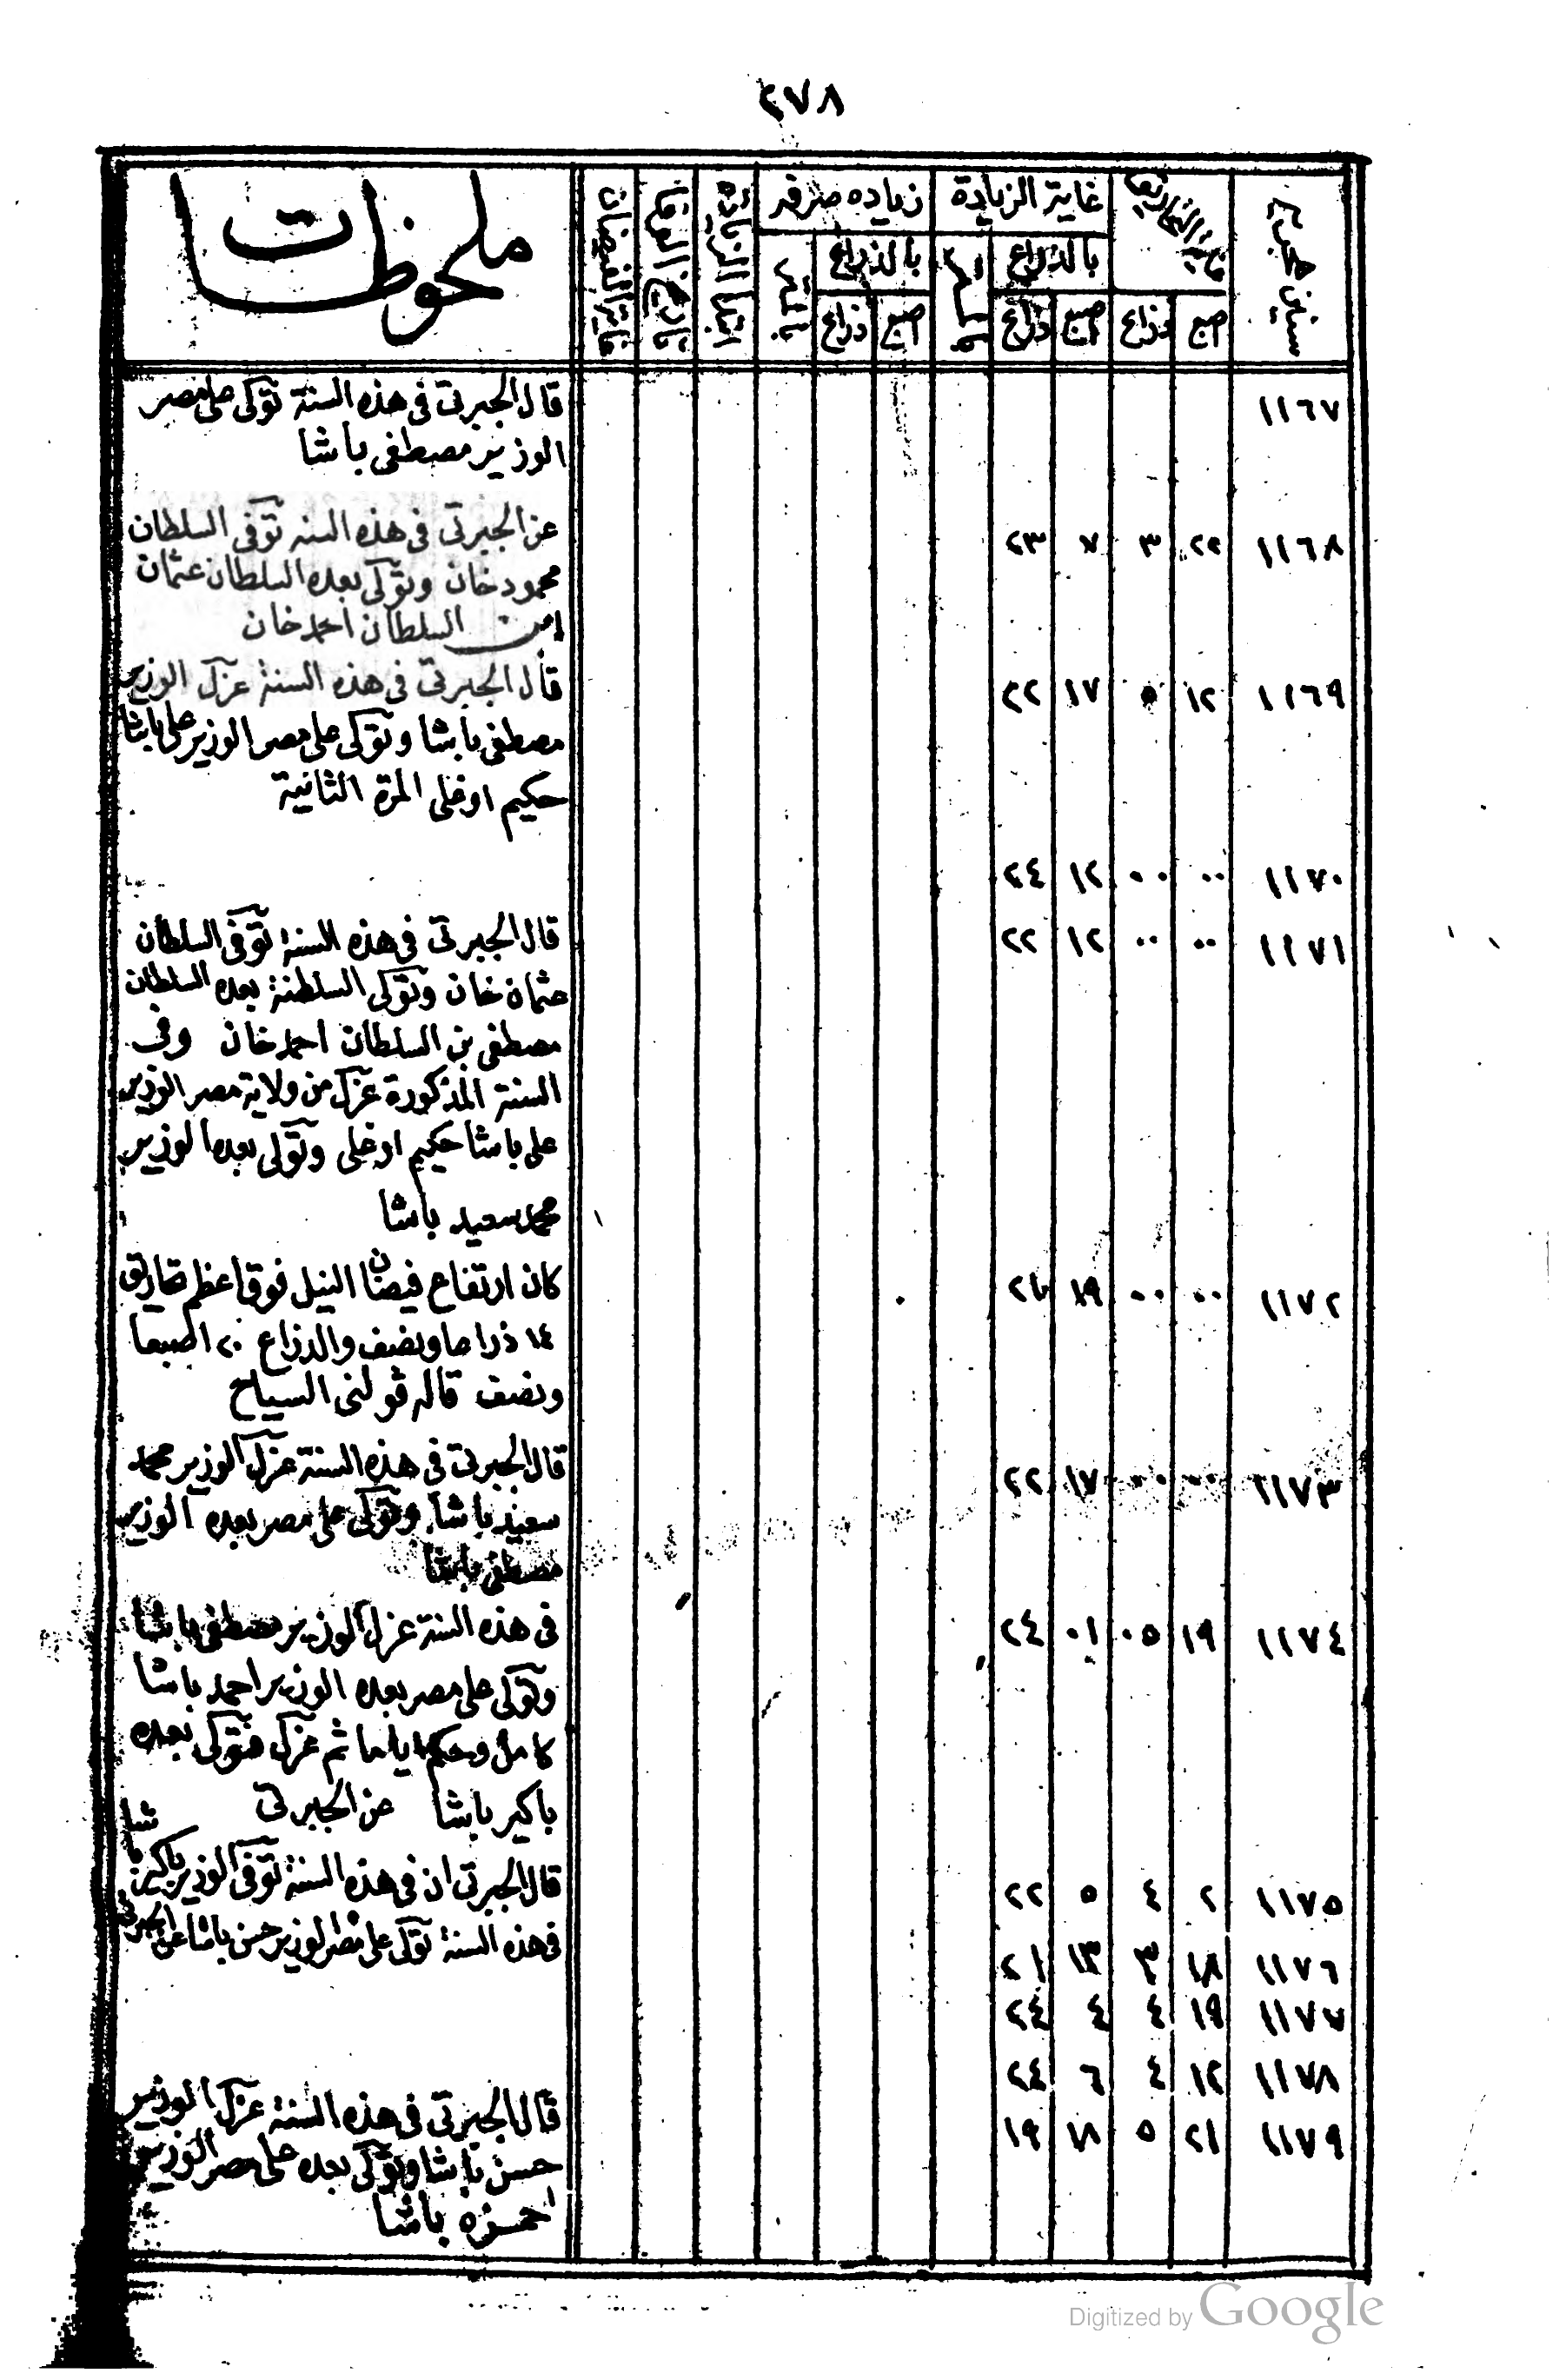 ٢٧٨
سنين هجرية
نهاية التحاريق
غاية الزيادة
زياده متر قبر
ملحوظات
بالذراع
بالذراع
اصبع ذراع اصبع ذراع اصبع ذراع
ابتدا الزيادة
تاريخ الوفا
غاية الفيضان
١١٦٧
قال الجبرتى فى هذه السنة تولى على مصر
الوزير مصطفى باشا
١١٦٨ ٢٢ ٣ ٧ ٢٣
عن الجبرتى فى هذه السنه توفى السلطان
محمود خان وتولى بعده السلطان عثمان
ابن السلطان احمد خان
١١٦٩ ١٢ ٥ ١٧ ٢٢
قال الجبرتى فى هذه السنة عزل الوزير
مصطفى باشا وتولى على مصر الوزير على باشا
حكيم اوغلى المرة الثانية
١١٧٠ ٠٠ ٠٠ ١٢ ٢٤
١١٧١ ٠٠ ٠٠ ١٢ ٢٢
قال الجبرتى فى هذه السنة توفى السلطان
عثمان خان وتولى السلطنة بعده السلطان
مصطفى بن السلطان احمد خان وفى
السنة المذكورة عزل من ولاية مصر الوزير
على باشا حكيم اوغلى وتولى بعده الوزير
محمد سعيد باشا
١١٧٢ ٠٠ ٠٠ ١٩
كان ارتفاع فيضان النيل فوق اعظم تحاريق
١٤ ذراعا ونصف والذراع ٢٠ اصبعا
ونصف قاله ڤولنى السياح
١١٧٣ ٠٠ ٠٠ ١٧ ٢٢
قال الجبرتى فى هذه السنة عزل الوزير محمد
سعيد باشا وتولى على مصر بعده الوزير
مصطفى باشا
١١٧٤ ١٩ ٠٥ ٠١ ٢٤
فى هذه السنة عزل الوزير مصطفى باشا
وتولى على مصر بعده الوزير احمد باشا
كامل وحكم اياما ثم عزل فتولى بعده
باكير باشا عن الجبرتى
١١٧٥ ٢ ٤ ٥ ٢٢
قال الجبرتى ان فى هذه السنة توفى الوزير باكير باشا
١١٧٦ ١٨ ٣ ١٣ ٢١
فى هذه السنة تولى على مصر الوزير حسن باشا عن الجبرتى
١١٧٧ ١٩ ٤ ٤ ٢٤
١١٧٨ ١٢ ٤ ٦ ٢٤
١١٧٩ ٢١ ٥ ١٨ ١٩
قال الجبرتى فى هذه السنة عزل الوزير
حسن باشا وتولى بعده على مصر الوزير
احمزه باشا
Digitized by Google